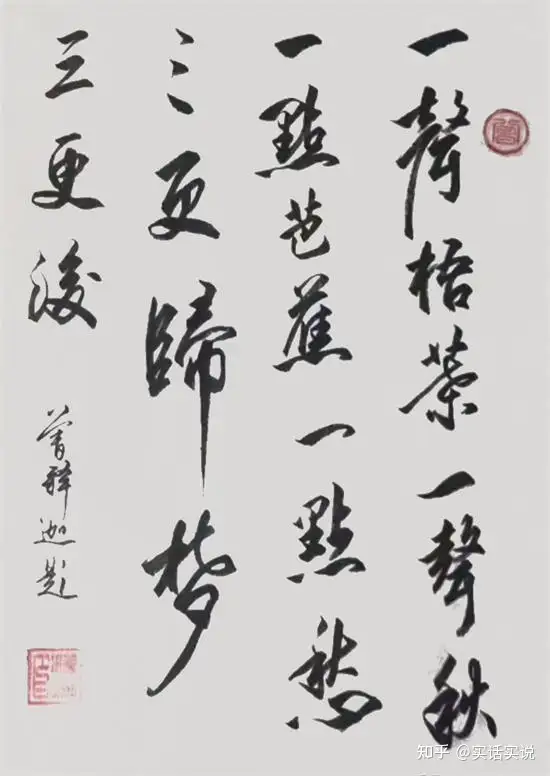 一聲梧葉一聲秋
一點芭蕉一點愁
三更歸夢
三更後
曾釋迦題
知乎 @实话实说